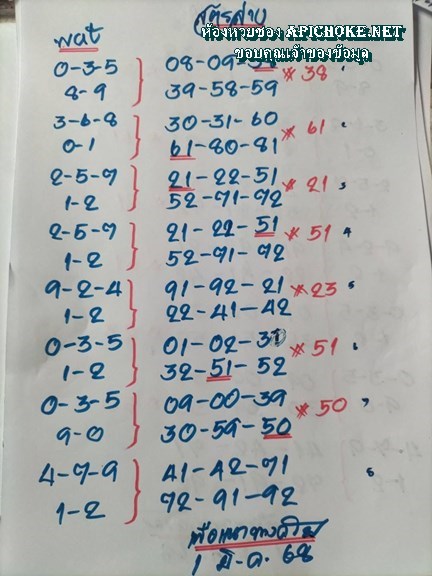 สูตรล่าง
ห้องหวยซอง APICHOKE.NET
ขอบคุณเจ้าของข้อมูล
0-3-5 08-09-38
8-9 39-58-59 * 38 1
3-6-8 30-31-60
0-1 61-80-81 * 61 2
2-5-7 21-22-51
1-2 52-71-72 * 21 3
2-5-7 21-22-51
1-2 52-71-72 * 51 4
9-2-4 91-92-21
1-2 22-41-42 * 23 5
0-3-5 01-02-31
1-2 32-51-52 * 51 6
0-3-5 09-00-39
9-0 30-59-50 * 50 7
4-7-9 41-42-71
1-2 72-91-92 8
1 มี.ค. 68